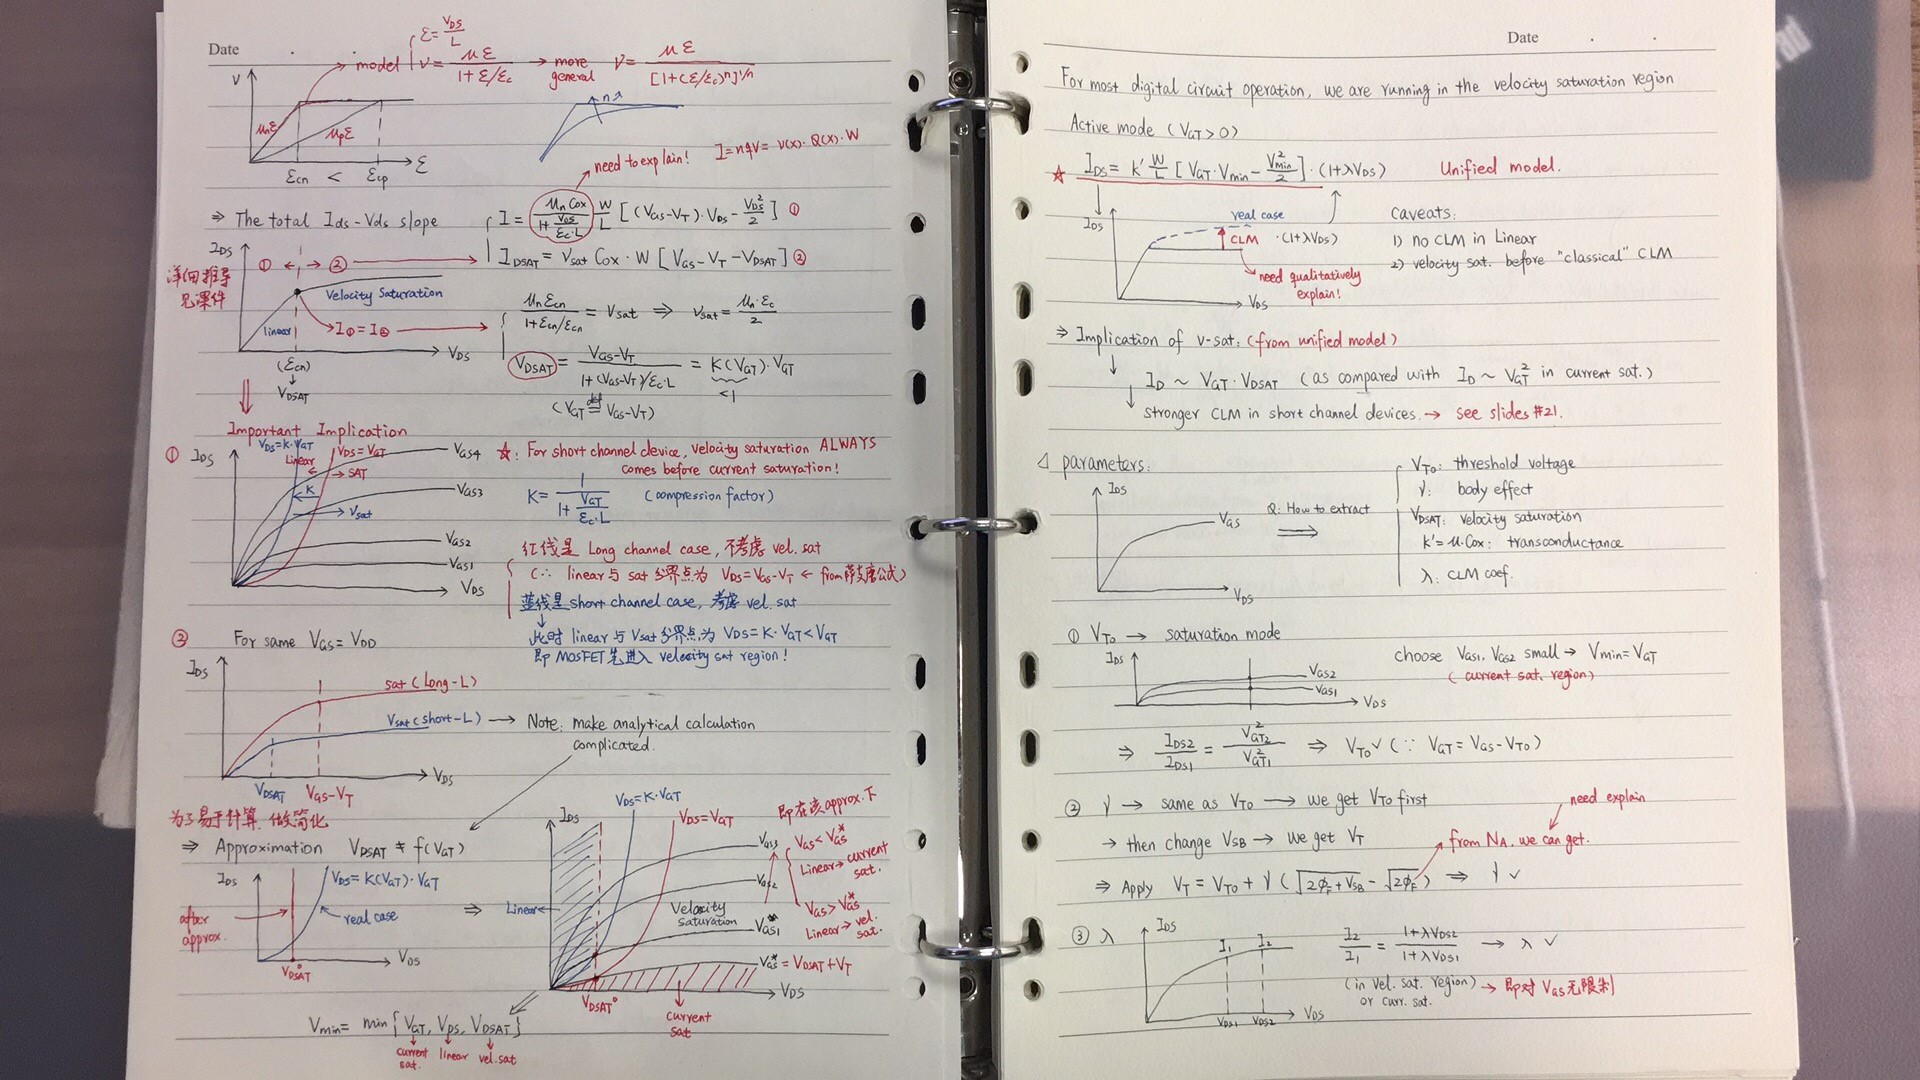 Date
ε = VDS/L
model ν = με/(1+ε/εc) → more general ν = με/[1+(ε/εc)^n]^1/n
V
μnε
μpε
n↗
ε
εcn < εcp
need to explain!
I = nqV = V(x)·Q(x)·W
⇒ The total Ids-Vds slope
I = μn Cox/(1+VDS/(εc·L)) W/L [(VGS-VT)·VDS - VDS²/2] ①
IDSAT = νsat Cox·W [VGS-VT-VDSAT] ②
IDS
① ← → ②
详细推导
见课件
Velocity Saturation
linear
I①=I②
VDS
(εcn)
↓
VDSAT
μn εcn/(1+εcn/εcn) = Vsat ⇒ νsat = μn·εc/2
VDSAT = (VGS-VT)/(1+(VGS-VT)/εc·L) = K(VGT)·VGT
<1
(VGT def= VGS-VT)
Important Implication
① IDS
VDS=K·VGT
Linear
VDS=VGT
→ SAT
K
→ Vsat
VGS4
VGS3
VGS2
VGS1
VDS
☆: For short channel device, velocity saturation ALWAYS
comes before current saturation!
K = 1/(1+VGT/(εc·L)) (compression factor)
红线是 Long channel case, 不考虑 vel. sat
(∴ linear与 sat 分界点为 VDS=VGS-VT ← from萨支唐公式)
蓝线是short channel case, 考虑 vel. sat
↓
此时 linear 与 Vsat 分界点为 VDS=K·VGT<VGT
即 MOSFET先进入 velocity sat region!
② For same VGS=VDD
IDS
sat (Long-L)
Vsat (short-L) → Note: make analytical calculation
complicated.
VDS
VDSAT VGS-VT
为了易于计算, 做简化
⇒ Approximation VDSAT ≠ f(VGT)
IDS
VDS=K(VGT)·VGT
real case
after
approx.
VDS
VDSAT°
⇒
IDS
VDS=K·VGT
VDS=VGT
即在该approx.下
VGS3
VGS2
VGS1
Linear
Velocity
saturation
VGS*=VDSAT+VT
VDS
VDSAT°
current
sat
VGS<VGS*
Linear→current
sat.
VGS>VGS*
Linear→vel.
sat.
Vmin = min{VGT, VDS, VDSAT}
current
sat.
linear
vel.sat
Date
For most digital circuit operation, we are running in the velocity saturation region
Active mode (VGT>0)
☆ IDS = K' W/L [VGT·Vmin - Vmin²/2]·(1+λVDS) Unified model.
IDS
real case
CLM ·(1+λVDS)
need qualitatively
explain!
VDS
Caveats:
1) no CLM in Linear
2) velocity sat. before "classical" CLM
⇒ Implication of v-sat: (from unified model)
↓ ID ~ VGT·VDSAT (as compared with ID ~ VGT² in current sat.)
↓ stronger CLM in short channel devices. → see slides #21.
◁ parameters:
IDS
VGS
VDS
Q: How to extract
⇒
VT0: threshold voltage
γ: body effect
VDSAT: velocity saturation
K'=μ·Cox: transconductance
λ: CLM coef.
① VT0 → saturation mode
IDS
VGS2
VGS1
VDS
choose VGS1, VGS2 small → Vmin=VGT
(current sat. region)
⇒ IDS2/IDS1 = VGT2²/VGT1² ⇒ VT0 ✓ (∵ VGT=VGS-VT0)
② γ → same as VT0 → we get VT0 first
need explain
→ then change VSB → we get VT
from NA, we can get.
⇒ Apply VT = VT0 + γ(√(2ΦF+VSB) - √(2ΦF)) ⇒ γ ✓
③ λ
IDS
I1 I2
VDS1 VDS2 VDS
I2/I1 = (1+λVDS2)/(1+λVDS1) → λ ✓
(in vel. sat. region) → 即对 VGS无限制
or curr. sat.